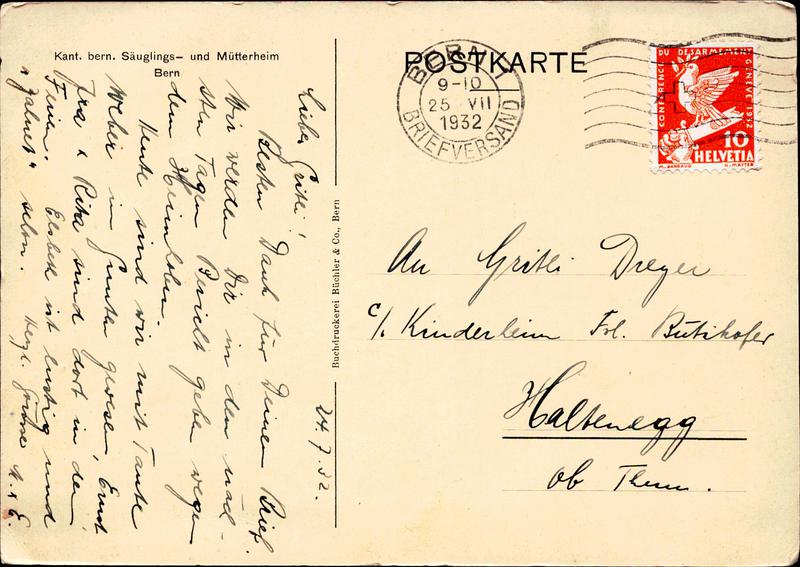 Kant. bern. Säuglings- und Mütterheim
Bern
24.7.32.
Liebe Gritli!
Besten Dank für Deinen Brief.
Wir werden Dir in den näch-
sten Tagen Bericht geben wegen
dem Heimholen.
Heute sind wir mit Tante
Weber in Gunten gewesen, Ernst
Fra & Rita sind dort in den
Ferien. Elsbeth ist lustig und
"zahnet" schon.
Herzl. Grüsse
Buchdruckerei Büchler & Co., Bern
POSTKARTE
BERN 1
9-10
25 VII
1932
BRIEFVERSAND
CONFERENCE DU DESARMEMENT GENEVE 1932
10
HELVETIA
An Gritli Dreyer
c/. Kinderheim Frl. Bützhofer
Haltenegg
ob Thun.